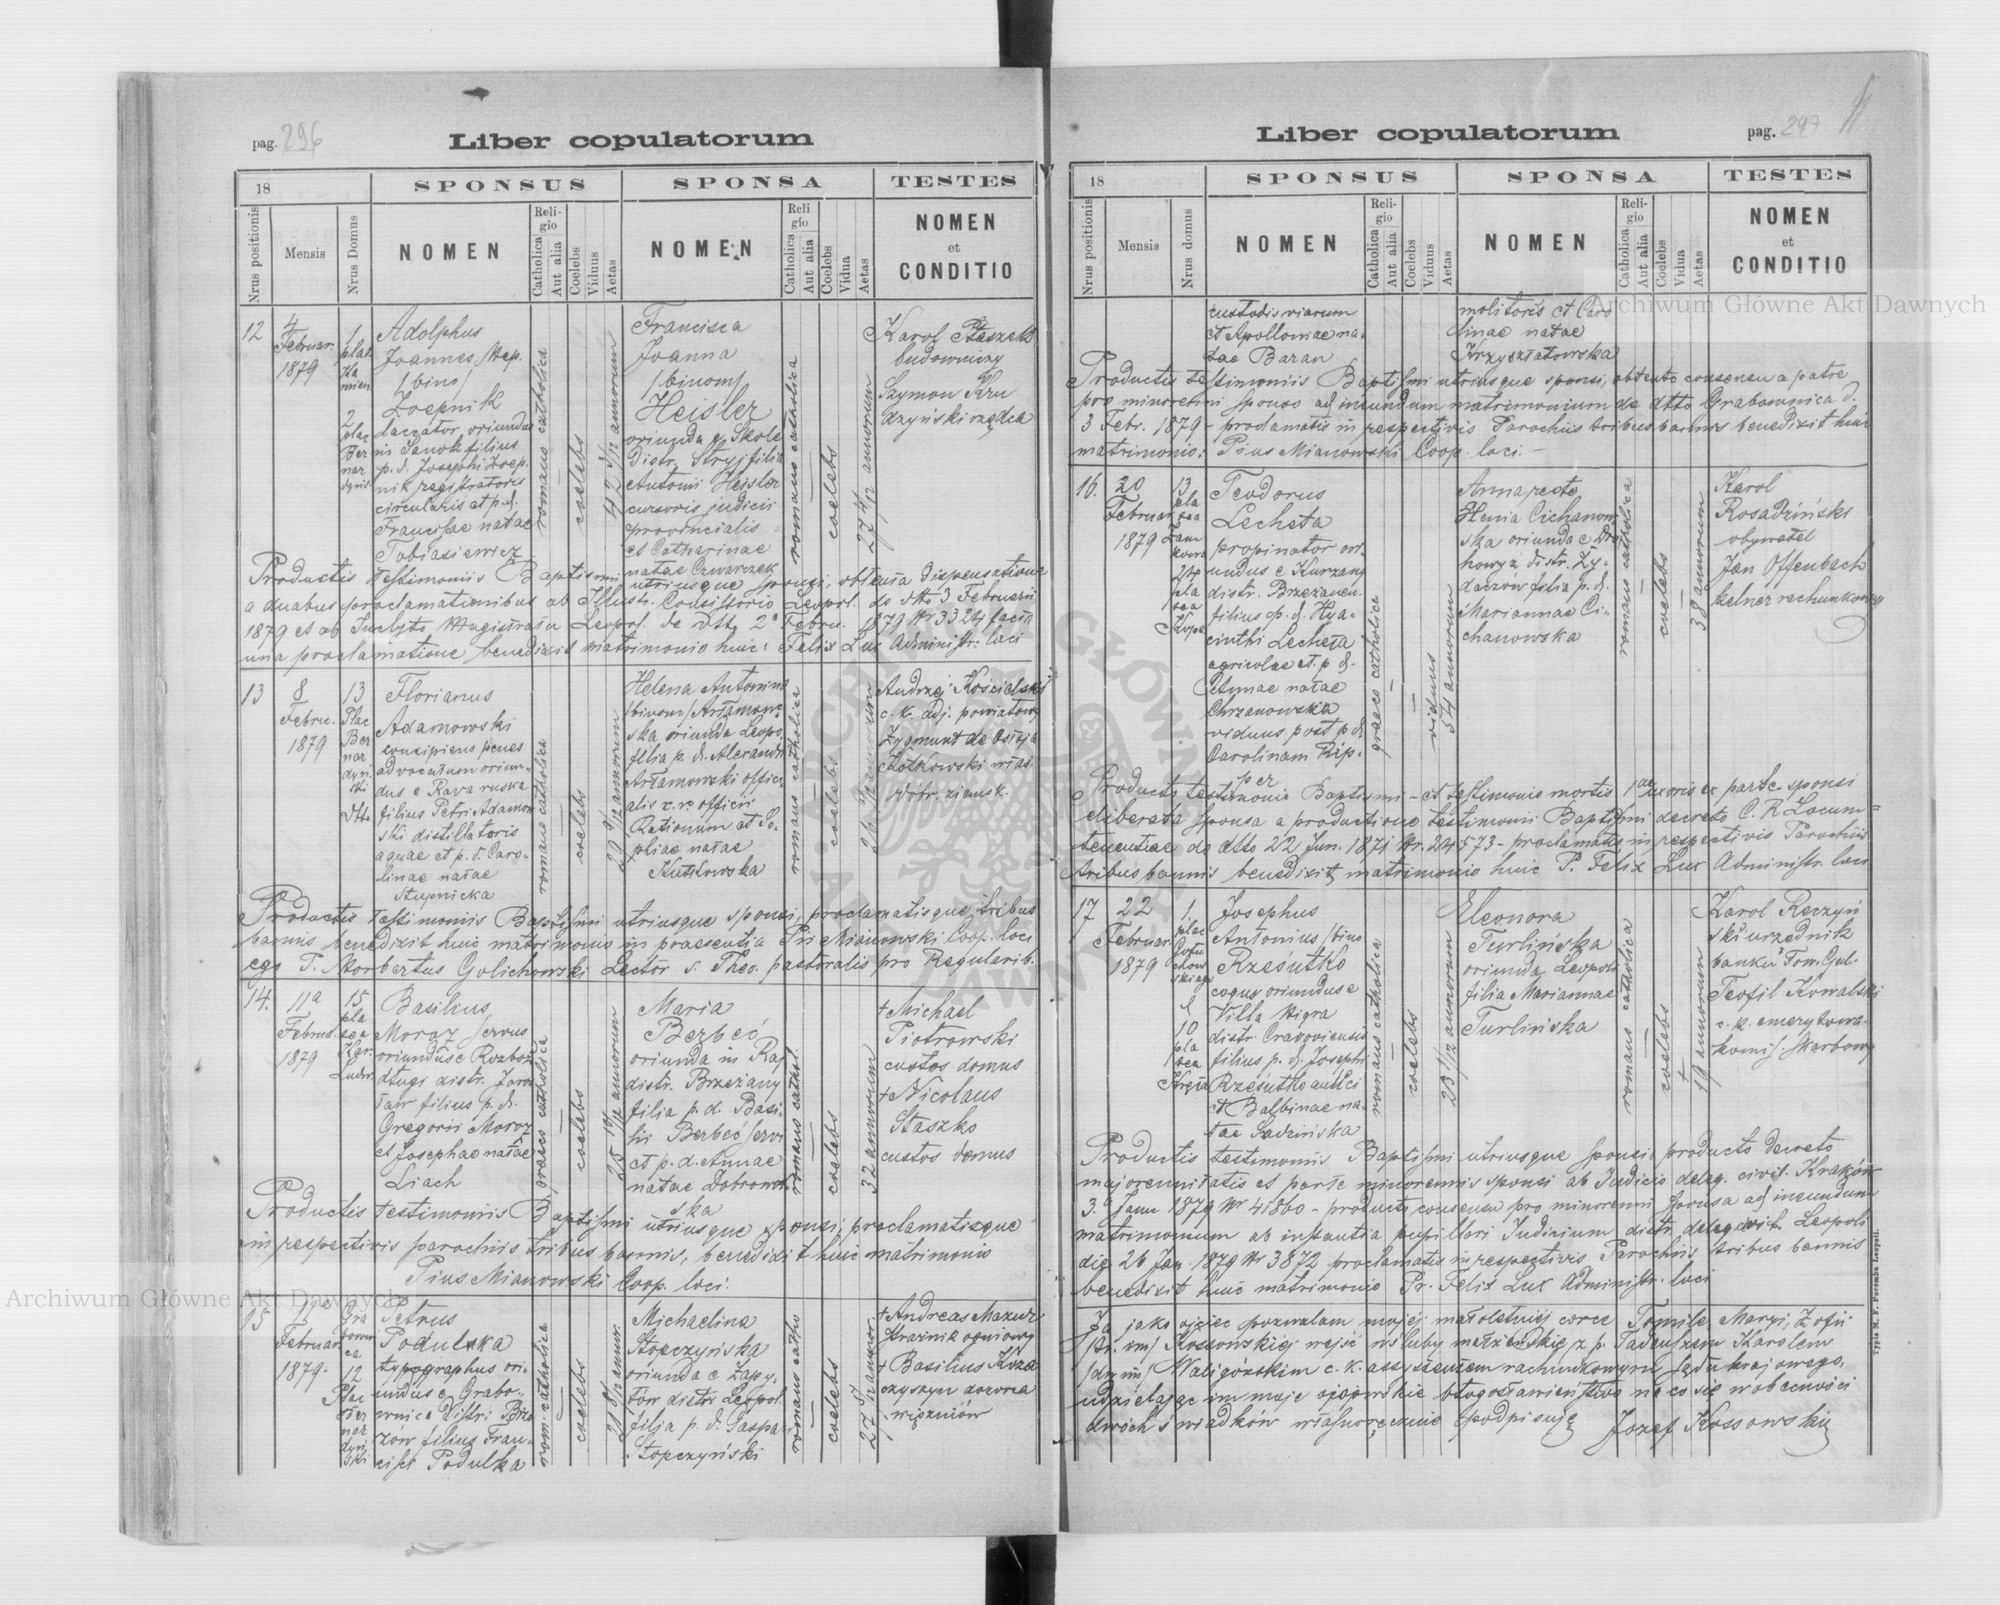 pag. 296
Liber copulatorum
18
SPONSUS
SPONSA
TESTES
Nrus positionis
Mensis
Nrus Domus
NOMEN
Religio
Catholica
Aut alia
Coelebs
Viduus
Aetas
NOMEN
Religio
Catholica
Aut alia
Coelebs
Vidua
Aetas
NOMEN
et
CONDITIO
12
4
Februar.
1879
Adolphus
Joannes Nep.
/bino/
Zoepnik
oriundus
in Sanok filius
p. d. Josephi Zoep-
nik registratoris
circularis et p. d.
Franciscae natae
Tobiasiewicz
romano catholica
coelebs
Francisca
Joanna
/binom/
Heisler
oriunda ex Skole
Distr. Stryj filia
Antonii Heisler
cursoris judicii
provincialis
et Catharinae
natae Czwarczek
romano catholica
coelebs
27 4/12 annorum
Karol Staszek
budowniczy
Szymon Kru
dzyński rządca
Productis testimoniis Baptismi utriusque sponsi, obtenta dispensatione
a duabus proclamationibus ab Illustr. Consistorio Leopol. de dtto 3 Februarii
1879 et ab Inclyto Magistratu Leopol. de dtto 2 Febru. 1879 Nr 3324 facta
una proclamatione benedixit matrimonio huic: Felix Lux Administr. loci
13
8
Febru.
1879
13
Plac
Ber
nar
dyń
ski
dtto
Florianus
Adamowski
concipiens penes
advocatum oriun-
dus e Rava ruska
filius Petri Adamow
ski distillatoris
aquae et p. d. Caro-
linae natae
Stupnicka
romano catholica
coelebs
Helena Antonina
/binom/ Artamow
ska oriunda Leopo.
filia p. d. Alexandri
Artamowski offici
alis c. r. officii
Rationum et So-
phiae natae
romano catholica
coelebs
Andrzej Kościelski
c. k. adj. powiatowy
Zygmunt de Ostoja
Kotkowski właś.
dóbr. ziemsk.
Productis testimoniis Baptismi utriusque sponsi, proclamatisque tribus
bannis benedixit huic matrimonio in praesentia Pii Mianowski Coop. loci
ego P. Norbertus Golichowski Lector s. Theo. pastoralis pro Regularib.
14.
11a
Februar.
1879
15
pla
tea
Kar.
Ludw.
Basilius
Moroz servus
oriundus e Rozboż
długi distr. Jaros
ław filius p. d.
Gregorii Moroz
et Josephae natae
Liach
graeco catholica
coelebs
25 10/12 annorum
Maria
Berbeć
oriunda in Raj
distr. Brzeżany
filia p. d. Basi-
lii Berbeć servi
et p. d. Annae
natae Dobrowol-
ska
romano cathol.
coelebs
32 annorum
+ Michael
Piotrowski
custos domus
+ Nicolaus
Staszko
custos domus
Productis testimoniis Baptismi utriusque sponsi, proclamatisque
in respectivis parochiis tribus bannis, benedixit huic matrimonio
Pius Mianowski Coop. loci.
15
Februar.
1879.
Gra
bowni
ca
12
Plac
Ber
nar
dyń
ski
Petrus
Podulka
typographus ori-
undus e Grabo-
wnica Distri Brzo
zow filius Fran-
cisci Podulka
rom. catholica
coelebs
Michaelina
Stopczyńska
oriunda e Zapy-
tów distr Leopol.
filia p. d. Gaspari
Stopczyński
romano catho
coelebs
+ Andreas Mazur
strażnik ogniowy
+ Basilius Koza
czyszyn dozorca
więźniów
pag. 297
Liber copulatorum
18
SPONSUS
SPONSA
TESTES
Nrus positionis
Mensis
Nrus domus
NOMEN
Religio
Catholica
Aut alia
Coelebs
Viduus
Aetas
NOMEN
Religio
Catholica
Aut alia
Coelebs
Vidua
Aetas
NOMEN
et
CONDITIO
custodis viarum
et Apolloniae na-
tae Baran
molitoris et Caro
linae natae
Krzyształowska
Productis testimoniis Baptismi utriusque sponsi, obtento consensu a patre
pro minorenni sponso ad ineundum matrimonium de dtto Grabownica d.
3 Febr. 1879 - proclamatis in respectivis Parochiis tribus bannis benedixit huic
matrimonio: Pius Mianowski Coop. loci.
16.
20
Februar
1879
13
pla
tea
Zam
kowa
24
pla
tea
Teodorus
Lecheta
propinator ori-
undus e Kurzany
distr. Brzeżanen.
filius p. d. Hya-
cinthi Lecheta
agricolae et p. d.
Annae natae
Chrzanowska
viduus post p. d.
Carolinam Rip-
per
graeco catholica
viduus
54 annorum
Anna recte
Henia Cichanow
ska oriunda e Dro
howyż distr. Ży-
daczów filia p. d.
Mariannae Ci-
chanowska
romano catholica
coelebs
38 annorum
Karol
Rosadziński
obywatel
Jan Offenbach
kelner rachunkowy
Producto testimonio Baptismi - et testimonio mortis 1ae uxoris ex parte sponsi
deliberata sponsa a productione testimonii Baptismi decreto C. R. Locum=
tenentiae de dtto 22 Jun. 1871 Nr. 24573 - proclamatis in respectivis Parochiis
tribus bannis benedixit matrimonio huic P. Felix Lux Administr. loci
17
22
Februar.
1879
1.
plac
Gołu
chow
skiego
10
pla
tea
Josephus
Antonius /bino
Rześutko
coquus oriundus e
Villa Nigra
distr. Cracoviensis
filius p. d. Josephi
Rześutko aulici
et Balbinae na-
tae Sadzińska
romano catholica
coelebs
23 1/12 annorum
Eleonora
Turlińska
oriunda Leopoli
filia Mariannae
Turlińska
romano catholica
coelebs
19 annorum
Karol Reczyń
ski urzędnik
banku Tow. Gal.
Teofil Kowalski
c. k. emerytowa.
komis. skarbowy
Productis testimoniis Baptismi utriusque sponsi, producto decreto
majorennitatis ex parte minorennis sponsi ab Judicio deleg. civil. Kraków
3. Janu 1879 Nr 41860 - producto consensu pro minorenni sponsa ad ineundum
matrimonium ab instantia pupillari Judicium distr. deleg. civil. Leopoli
die 26 Jan. 1879 Nr 3872 proclamatis in respectivis Parochiis tribus bannis
benedixit huic matrimonio Pr. Felix Lux Administr. loci
Ja jako ojciec pozwalam mojej małoletniej corce Tomile Maryi, Zofii
Kossowskiej wejść w śluby małżeńskie z p. Tadeuszem Karolem
Waligórskim c. k. assystentem rachunkowym Sądu krajowego,
udzielając im moje ojcowskie błogosławieństwo na co się w obecności
dwóch świadków własnoręcznie podpisuję Jozef Kossowski
Typis M. F. Poremba Leopoli.
Archiwum Główne Akt Dawnych
Archiwum Główne Akt Dawnych